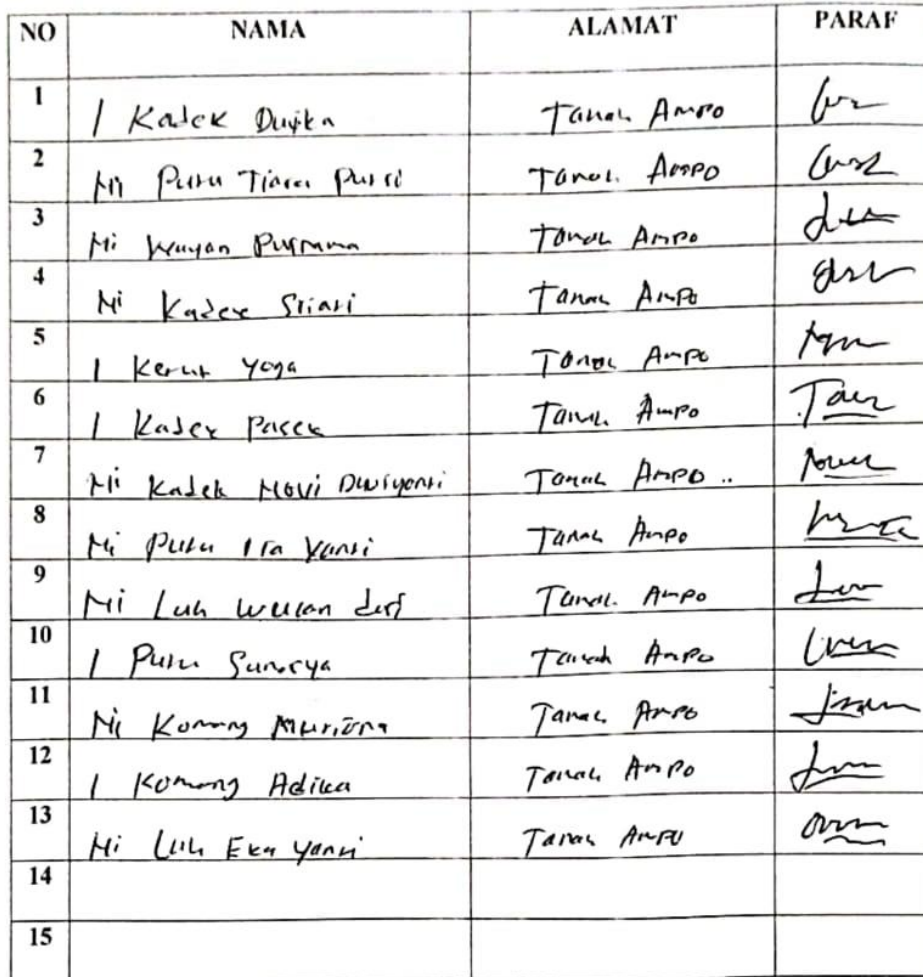 NO NAMA ALAMAT PARAF
1 I Kadek Dwika Tanah Ampo
2 Ni Putu Tiara Putri Tanah Ampo
3 Ni Wayan Tanah Ampo
4 Ni Kadek Sriasi Tanah Ampo
5 I Ketut Yoga Tanah Ampo
6 I Kadek Pasek Tanah Ampo
7 Ni Kadek Novi Dwiyanti Tanah Ampo ..
8 Ni Putu Ita Yanti Tanah Ampo
9 Ni Luh Wulan Tanah Ampo
10 I Putu Tanah Ampo
11 Ni Komang Tanah Ampo
12 I Komang Adika Tanah Ampo
13 Ni Luh Eka Yanti Tanah Ampo
14
15